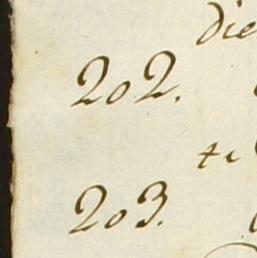 die
202.
203.